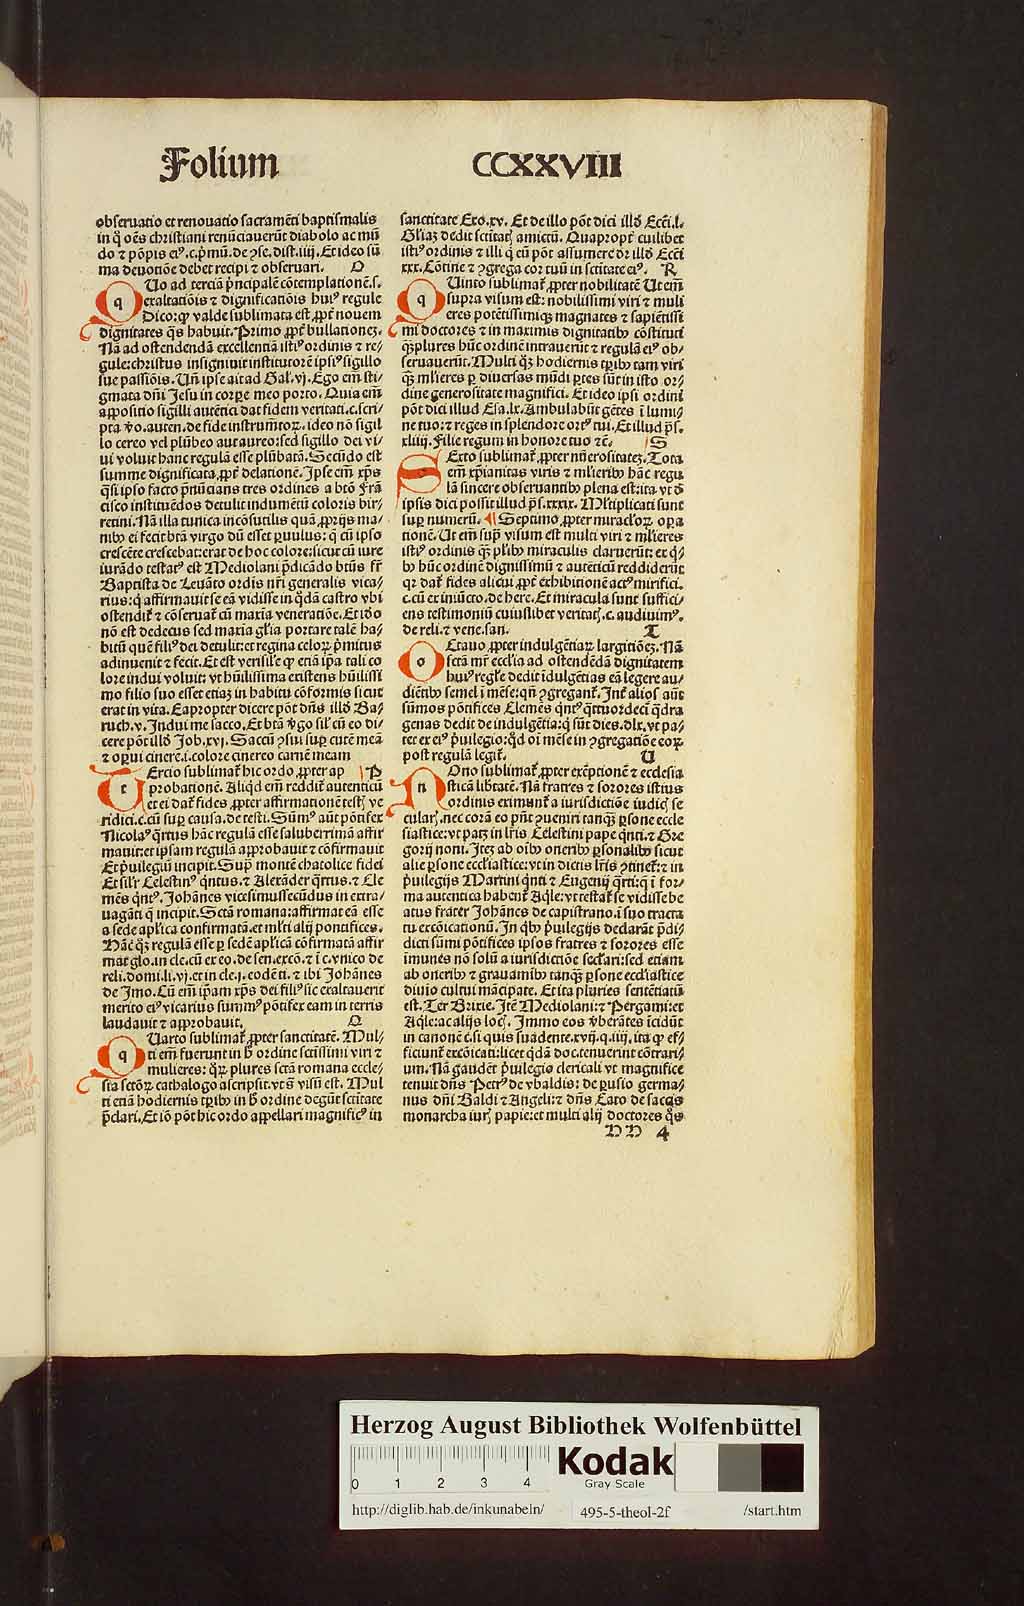 Folium CCXXVIII
obseruatio et renouatio sacramēti baptismalis
in q̄ oēs christiani renūciauerūt diabolo ac mū
do ⁊ pōpis eiꝰ.c.pͥmū.de ↄse.dist.iiij. Et ideo sū
ma deuotiōe debet recipi ⁊ obseruari. O
Uo ad terciā pͥncipalē cōtemplationē.s.
exaltatiōis ⁊ dignificatiōis huiꝰ regule
Dico: ꝙ valde sublimata est ꝓpt̄ nouem
dignitates q̄s habuit. Primo ꝓpt̄ bullationeꝫ.
Nā ad ostendendā excellentiā istiꝰ ordinis ⁊ re/
gule: christus insigniuit institutorē ipsiꝰ sigillo
sue passiōis. Un̄ ipse ait ad Gal̄.vj. Ego em̄ sti/
gmata dn̄i Jesu in corpe meo porto. Quia em̄
appositio sigilli autētici dat fidem veritati.c.scri/
pta v̄o.auten.de fide instrumētoꝝ. ideo nō sigil
lo cereo vel plūbeo aut aureo: sed sigillo dei vi/
ui voluit hanc regulā esse plūbatā. Secūdo est
summe dignificata ꝓpt̄ delationē. Ipse em̄ xp̄s
q̄si ipso facto pͥnūcians tres ordines a btō Frā
cisco instituēdos detulit indumētū coloris bir/
retini. Nā illa tunica incōsutilis quā ꝓprijs ma/
nibꝰ ei fecit btā virgo dū esset ꝑuulus: q̄ cū ipso
crescēte crescebat: erat de hoc colore: sicut cū iure
iurādo testatꝰ est Mediolani p̄dicādo btūs fr̄
Baptista de Leuāto ordīs nr̄i generalis vica/
rius: q̄ affirmauit se eā vidisse in q̄dā castro vbi
ostendit̄ ⁊ cōseruat̄ cū maxīa veneratiōe. Et iō
nō est dedecus sed maxīa gl̄ia portare talē ha/
bitū quē filiꝰ dei detulit: et regina celoꝝ pͥmitus
adinuenit ⁊ fecit. Et est verisil̄e ꝙ etiā ip̄a tali co
lore indui voluit: vt hūilissima existens hūilissi
mo filio suo esset etiaꝫ in habitu cōformis sicut
erat in vita. Eapropter dicere pōt dn̄s illđ Ba/
ruch.v. Indui me sacco. Et btā v̄go sil̄ cū eo di/
cere pōt illđ Job.xvj. Saccū ↄsui suꝑ cutē meā
⁊ oꝑui cinere.i.colore cinereo carnē meam
Ercio sublimat̄ hic ordo ꝓpter ap P
probationē. Aliqđ em̄ reddit̄ autenticū
et ei dat̄ fides ꝓpter affirmationē testꝭ ve
ridici.c.cū suꝑ causa.de testi. Sūmꝰ aūt pōtifex
Nicolaꝰ q̄rtus hāc regulā esse saluberrimā affir
mauit: et ipsam regulā approbauit ⁊ cōfirmauit
Et pͥuilegiū incipit. Sup̄ montē chatolice fidei
Et sil̄r Celestinꝰ q̄ntus. ⁊ Alexāder q̄rtus. ⁊ Cle
mēs q̄ntꝰ. Johānes vicesimussecūdus in extra/
uagāti q̄ incipit. Sctā romana: affirmat eā esse
a sede apl̄ica confirmatā. et ml̄ti alij pontifices.
Hāc qꝫ regulā esse ꝑ sedē apl̄icā cōfirmatā affir
mat glo.in cle.cū ex eo.de sen.excō. ⁊ ī c.vnico de
reli.domi.li.vj.et in cle.j.eodē ti. ⁊ ibi Johānes
de Imo. Cū em̄ ip̄am xp̄s dei filiꝰ sic exaltauerit
merito eiꝰ vicarius summꝰ pōtifex eam in terris
laudauit ⁊ approbauit. Q
Uarto sublimat̄ ꝓpter sanctitatē. Mul/
ti em̄ fuerunt in h̄ ordine sctissimi viri ⁊
mulieres: qͦꝝ plures sctā romana eccle/
sia sctōꝝ cathalogo ascripsit. vt s̄ visū est. Mul
ti etiā hodiernis tꝑibꝰ in h̄ ordine degūt sctitate
p̄clari. Et iō pōt hic ordo appellari magnificꝰ in
sanctitate Exo.xv. Et de illo pōt dici illđ Ecci.l.
Gl̄iaꝫ dedit sctitatꝭ amictū. Quapropt̄ cuilibet
istiꝰ ordinis ⁊ illi q̄ eū pōt assumere dr̄ illđ Ecci
xxx. Cōtine ⁊ ↄgrega cor tuū in sctitate eiꝰ. R
Uinto sublimat̄ ꝓpter nobilitatē Ut em̄
supra visum est: nobilissimi viri ⁊ muli
eres potētissimiqꝫ magnates ⁊ sapiētissi
mi doctores ⁊ in maximis dignitatibꝰ cōstituti
q̄ꝫplures hūc ordinē intrauerūt ⁊ regulā eiꝰ ob/
seruauerūt. Multi qꝫ hodiernis tꝑibꝰ tam viri
qꝫ ml̄ieres ꝑ diuersas mūdi ꝑtes sūt in isto or/
dine generositate magnifici. Et ideo ipsi ordini
pōt dici illud Esa.lx. Ambulabūt gētes ī lumi/
ne tuo: ⁊ reges in splendore ortꝰ tui. Et illud pͣs.
xliiij. Filie regum in honore tuo ⁊c̄. S
Exto sublimat̄ ꝓpter nūerositateꝫ. Tota
em̄ xp̄ianitas viris ⁊ ml̄ieribꝰ hāc regu
lā sincere obseruantibꝰ plena est: ita vt đ
ipsis dici possit illud pͣs.xxxix. Ml̄tiplicati sunt
suꝑ numerū. ¶ Septimo ꝓpter miracl̄oꝝ oꝑa
tionē. Ut em̄ supͣ visum est multi viri ⁊ ml̄ieres
istiꝰ ordinis qꝫ pl̄ibꝰ miraculis claruerūt: et qͥ/
bꝰ hūc ordinē dignissimū ⁊ autēticū reddiderūt
qꝛ dat̄ fides alicui ꝓpt̄ exhibitionē actꝰ mirifici.
c.cū ex iniūcto.de here. Et miracula sunt suffici/
ens testimoniū cuiuslibet veritatꝭ.c.audiuimꝰ.
de reli. ⁊ vene.san. T
Ctauo ꝓpter indulgētiaꝝ largitiōeꝫ. Nā
sctā mr̄ eccl̄ia ad ostendēdā dignitatem
huiꝰ regl̄e dedit īdulgētias eā legere au/
diētibꝰ semel ī mēse: qn̄ ↄgregant̄. Int̄ alios aūt
sūmos pōtifices Clemēs q̄ntꝰ q̄ttuordecī q̄dra
genas dedit de indulgētia: q̄ sūt dies.dlx. vt pa/
tet ex eiꝰ pͥuilegio: qđ oī mēse in ↄgregatiōe eoꝝ
post regulā legit̄. U
Ono sublimat̄ ꝓpter exēptionē ⁊ ecclesia
sticā lib̄tatē. Nā fratres ⁊ sorores istius
ordinis eximunt̄ a iurisdictiōe iudicꝭ se
cularꝭ. nec corā eo pn̄t ↄueniri tanqꝫ ꝑsone eccle
siastice: vt patꝫ in lr̄is Celestini pape q̄nti. ⁊ Gre
gorij noni. Iteꝫ ab oībꝰ oneribꝰ ꝑsonalibꝰ sicut
alie ꝑsone eccl̄iastice: vt in dictis lr̄is ↄtinet̄: ⁊ in
pͥuilegijs Martini q̄nti ⁊ Eugenij q̄rti: q̄ ī for/
ma autentica habent̄ Aq̄le: vt testat̄ se vidisse be
atus frater Johānes de capistrano.ī suo tracta
tu excōicationū. In qͥbꝰ pͥuilegijs declarāt p̄di/
dicti sūmi pōtifices ipsos fratres ⁊ sorores esse
īmunes nō solū a iurisdictiōe secl̄ari: sed etiam
ab oneribꝰ ⁊ grauamībꝰ tanqꝫ ꝑsone eccl̄iastice
diuio cultui mācipate. Et ita pluries sentētiatū
est. Ter Brixie. Itē Mediolani: ⁊ Pergami: et
Aq̄le: ac alijs locꝭ. Immo eos v̄berātes īcidūt
in canonē c.si quis suadente.xvij.q.iiij. ita ꝙ ef/
ficiunt̄ excōicati: licet q̄dā doc.tenuerint cōtrari/
um. Nā gaudēt pͥuilegio clericali vt magnifice
tenuit dn̄s Petrꝰ de vbaldis: de ꝑusio germa/
nus dn̄i Baldi ⁊ Angeli: ⁊ dn̄s Cato de sacꝭs
monarcha iurꝭ papie: et multi alij doctores q̄s
DD 4
Herzog August Bibliothek Wolfenbüttel
0 1 2 3 4
Kodak
Gray Scale
http://diglib.hab.de/inkunabeln/ 495-5-theol-2f /start.htm